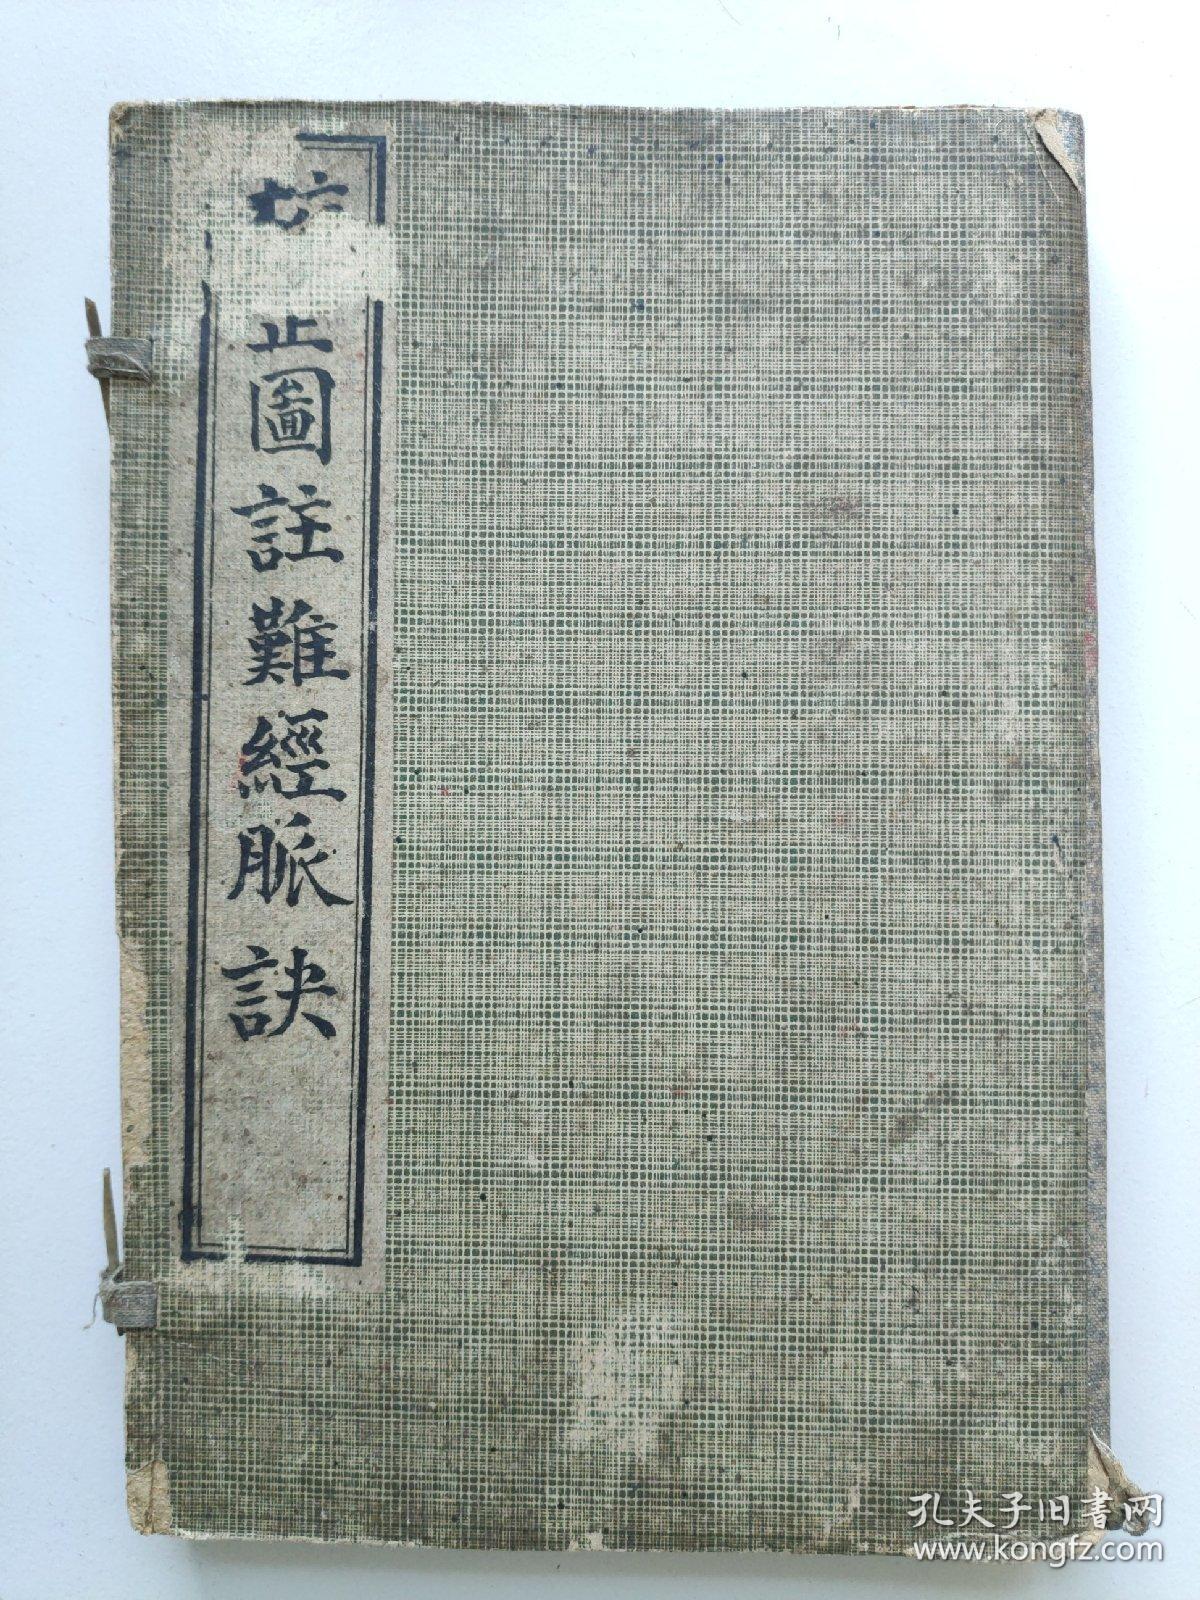 正圖註難經脈訣
孔夫子旧書网
www.kongfz.com